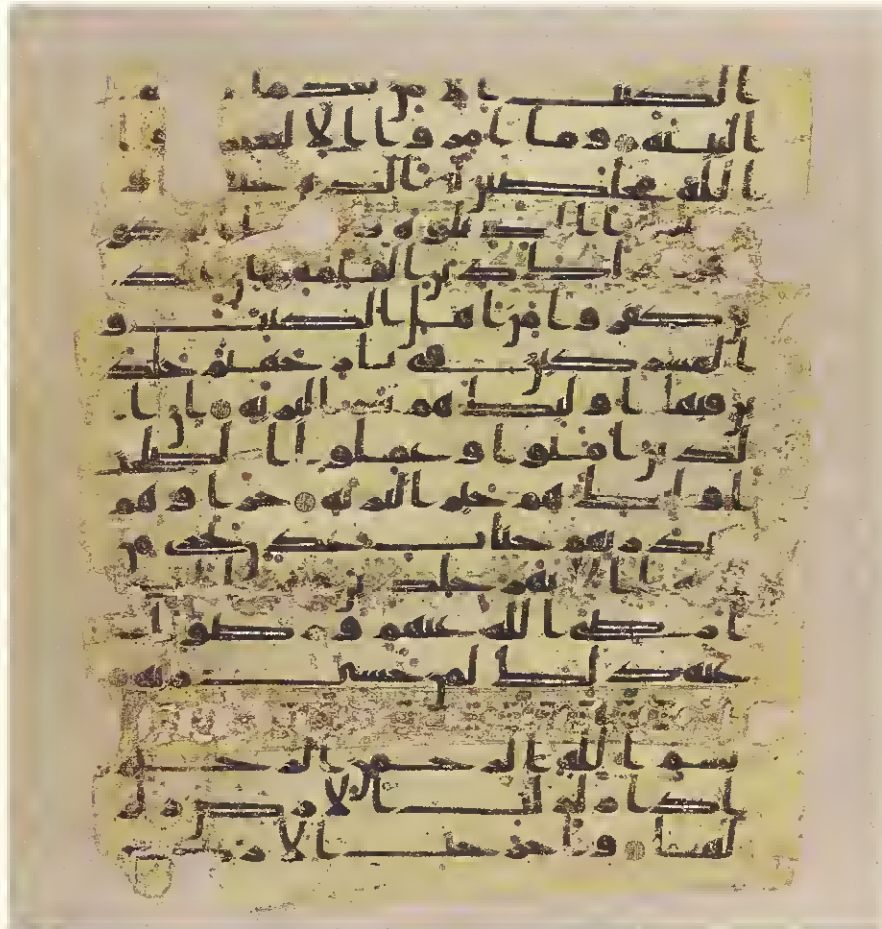 الكتب الا من بعد ما
البينة وما امروا الا ليعبدوا
الله مخلصين له الدين حنفا و
يقيموا الصلوة و يوتوا الزكو
ة و ذلك دين القيمة ان الذين
كفروا من اهل الكتب و
المشركين في نار جهنم خلد
ين فيها اوليك هم شر البرية ان ا
لذين امنوا و عملوا الصلحت
اوليك هم خير البرية جزاوهم
عند ربهم جنت عدن تجري من
تحتها الانهر خلدين فيها
رضي الله عنهم و رضوا عنه
ذلك لمن خشي ربه
بسم الله الرحمن الرحيم
اذا زلزلت الارض زلزا
لها واخرجت الارض